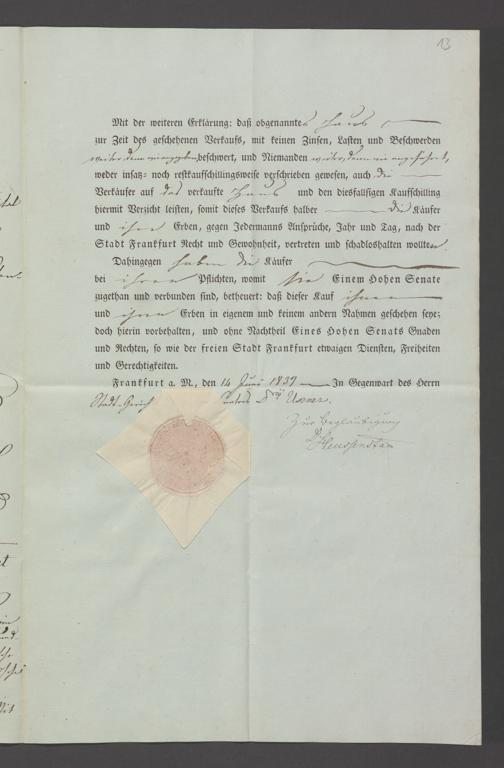 13
Mit der weiteren Erklärung: daß obgenanntes Haus
zur Zeit des geschehenen Verkaufs, mit keinen Zinsen, Lasten und Beschwerden
weiter dann angegeben beschwert, und Niemanden weiter, dann wie angeführt,
weder insatz- noch restkaufschillingsweise verschrieben gewesen, auch die
Verkäufer auf das verkaufte Haus und den diesfallsigen Kaufschilling
hiermit Verzicht leisten, somit dieses Verkaufs halber die Käufer
und ihre Erben, gegen Jedermanns Ansprüche, Jahr und Tag, nach der
Stadt Frankfurt Recht und Gewohnheit, vertreten und schadloshalten wollten.
Dahingegen haben die Käufer
bei ihren Pflichten, womit sie Einem Hohen Senate
zugethan und verbunden sind, betheuert: daß dieser Kauf ihnen
und ihren Erben in eigenem und keinem andern Nahmen geschehen seye;
doch hierin vorbehalten, und ohne Nachtheil Eines Hohen Senats Gnaden
und Rechten, so wie der freien Stadt Frankfurt etwaigen Diensten, Freiheiten
und Gerechtigkeiten.
Frankfurt a. M., den 14 Juni 1839 In Gegenwart des Herrn
Stadt-Gerich Dris Usener.
Zur Beglaubigung